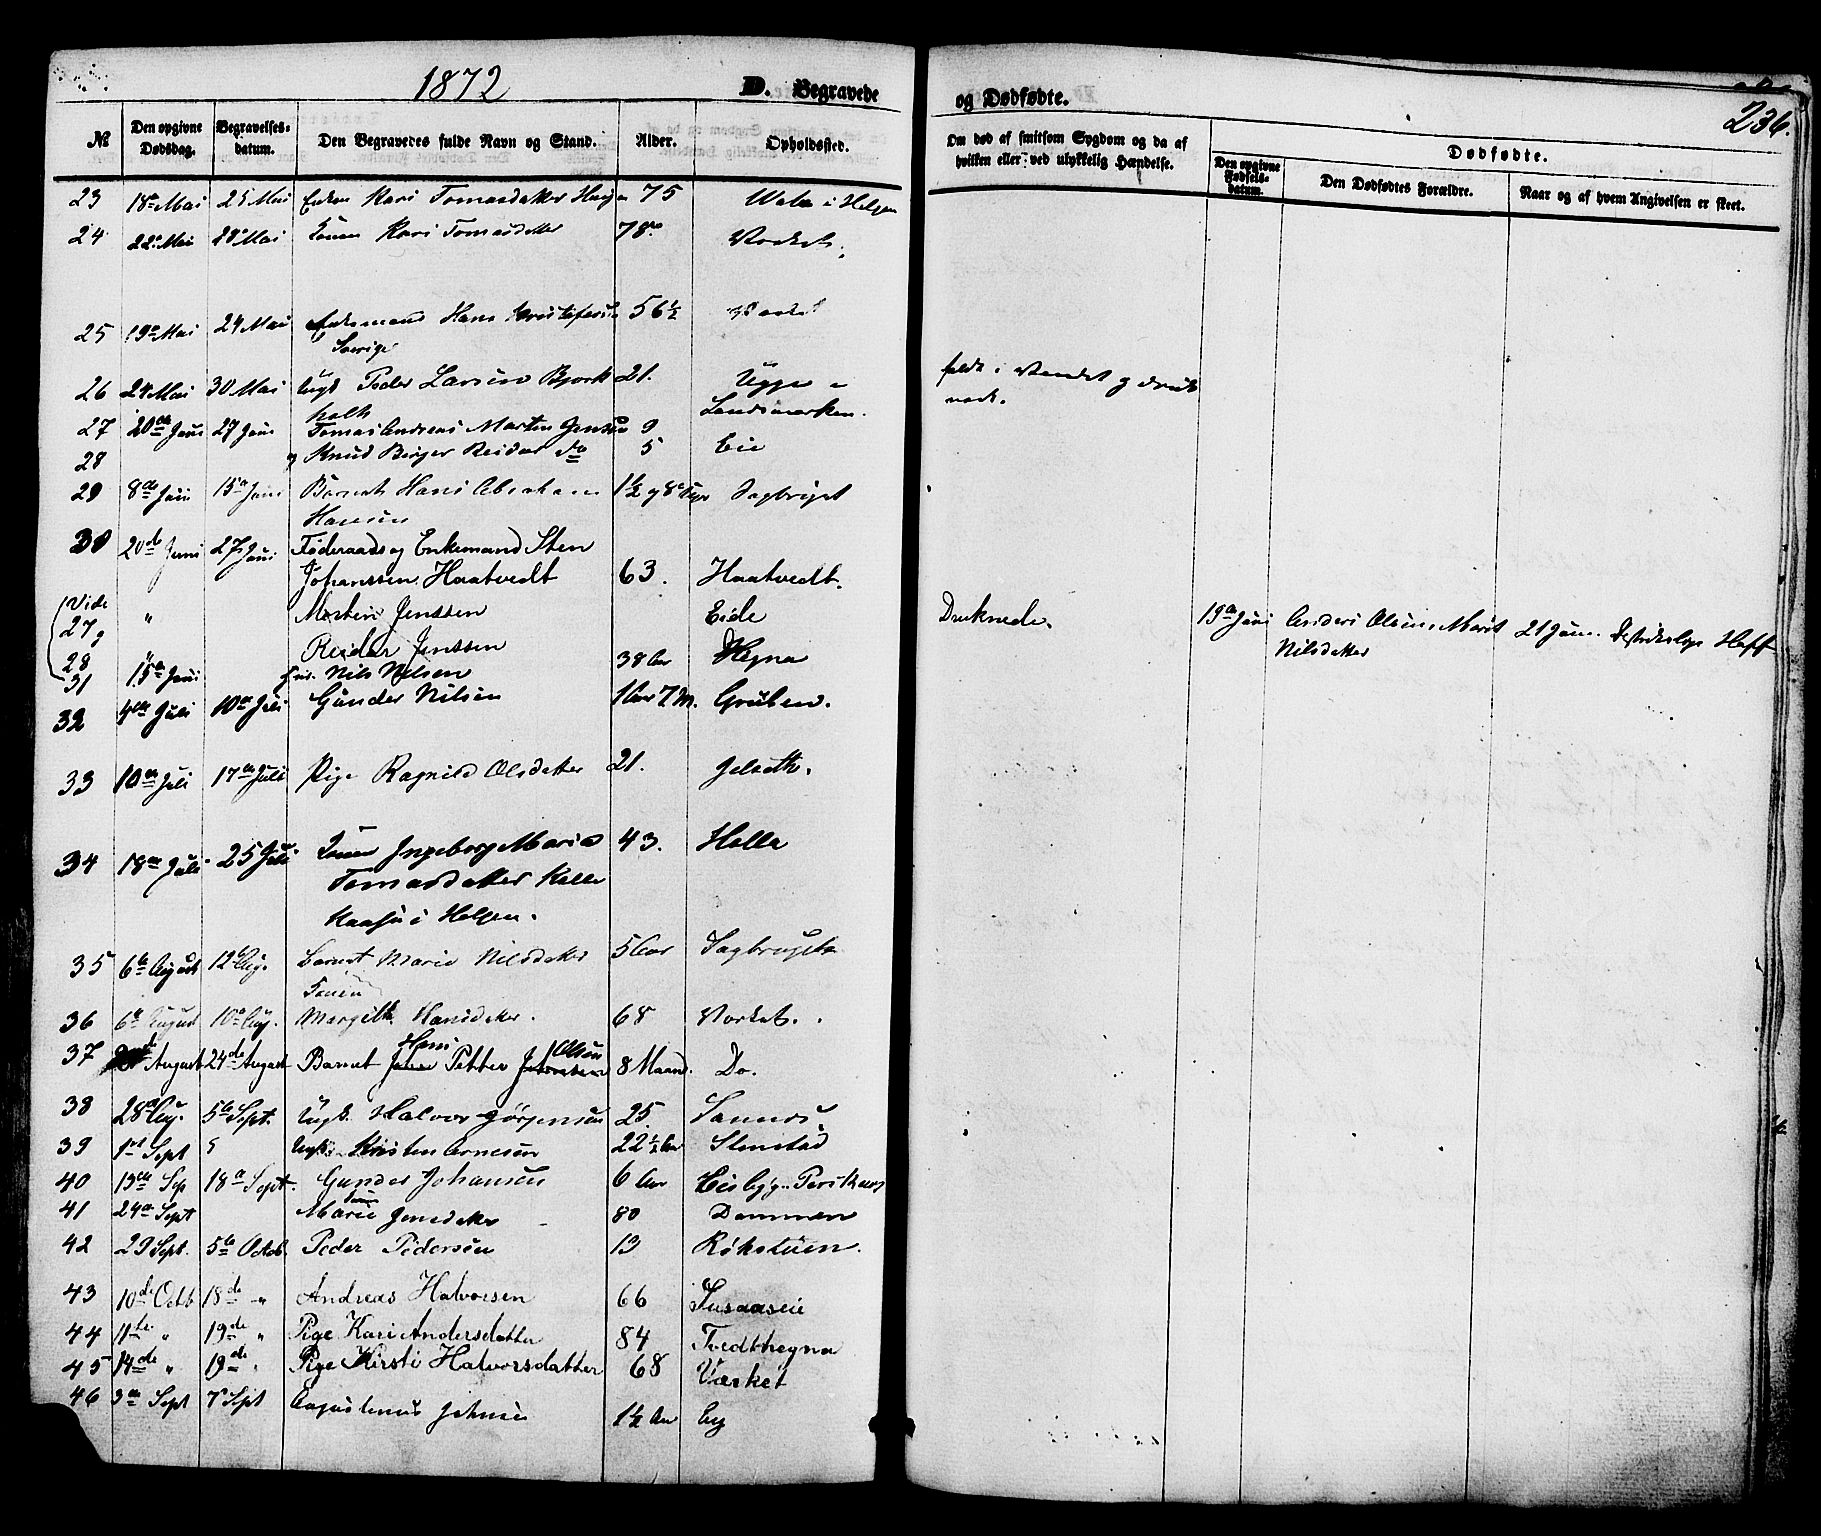 1872
D. Begravede
og Dødfødte.
236.
№
Den opgivne Dødsdag.
Begravelses-datum.
Den Begravedes fulde Navn og Stand.
Alder.
Opholdssted.
Om død af smitsom Sygdom og da af hvilken eller ved ulykkelig Hændelse.
Dødfødte.
Den opgivne Fødsels-datum.
Den Dødfødtes Forældre.
Naar og af hvem Angivelsen er skeet.
23 18de Mai 25 Mai Enken Kari Tomasdatter 75 i Helgen
24 22de Mai 28 Mai Konen Kari Tomasdatter 78 Værket
25 19de Mai 24 Mai Enkemand Hans Kristofersen 56½ Værket
Sverige
26 24 Mai 30 Mai Ungk Peder Larsen Bjørk 21.
holt Landsmarken.
27 20de Juni 27 Juni Tomas Andreas Martin Jensen 9
28 og Knud Berger Reidar do 5 Eie
29 8de Juni 15de Juni Barnet Hans Abraham 1½ Sagbruget
Hansen
30 20de Juni 27 Juni Føderaads og Enkemand Sten
Johanssen Haatvedt 63. Haatvedt.
(Vide 27 og 28 " Morten Jenssen Eide Druknede. 19de Juni Anders Olsen Marit 21 Juni Heft
" Reidar Jenssen Nilsdatter
31 15de Juni Nils Nilsen 38 Aar Hegna
32 4de Juli 10de Juli Gunder Nilsen 1 Aar 7 M. Gruben.
33 10de Juli 17de Juli Pige Ragnild Olsdatter 21. Jelseth.
34 18de Juli 25 Juli Konen Ingeborg Maria 43. Holla
Tomasdatter
Kaasa i Helgen.
35 6te August 12te Aug. Barnet Marie Nilsdatter 5 Aar Sagbruget
Konen
36 6te August 10de Aug. Margith Hansdatter. 68 Værket.
37 August 24de August Barnet Hans Petter Olsen 8 Maan. Do.
38 28de Aug. 5te Sept. Ungk. Halvor Jørgensen 25.
39 1ste Sept 5 Ungk. Kristen Arnesen 22½ Aar Stenstad
40 13de Sep 18de Sept. Gunder Johansen 6 Aar
41 24de Sept Marie Jensdatter 80 Dammen
42 29 Sept. 5te Octob. Peder Pedersen 13 Røkstuen.
43 10de Octb 18de " Andreas Halvorsen 66 Susaaseie
44 11te " 19de " Pige Kari Andersdatter 84 Tvedthegna
45 14de " 19de " Pige Kirsti Halvorsdatter 68 Værket
46 3de Sept 7 Sept Augustinus Johnsen 1½ Aar